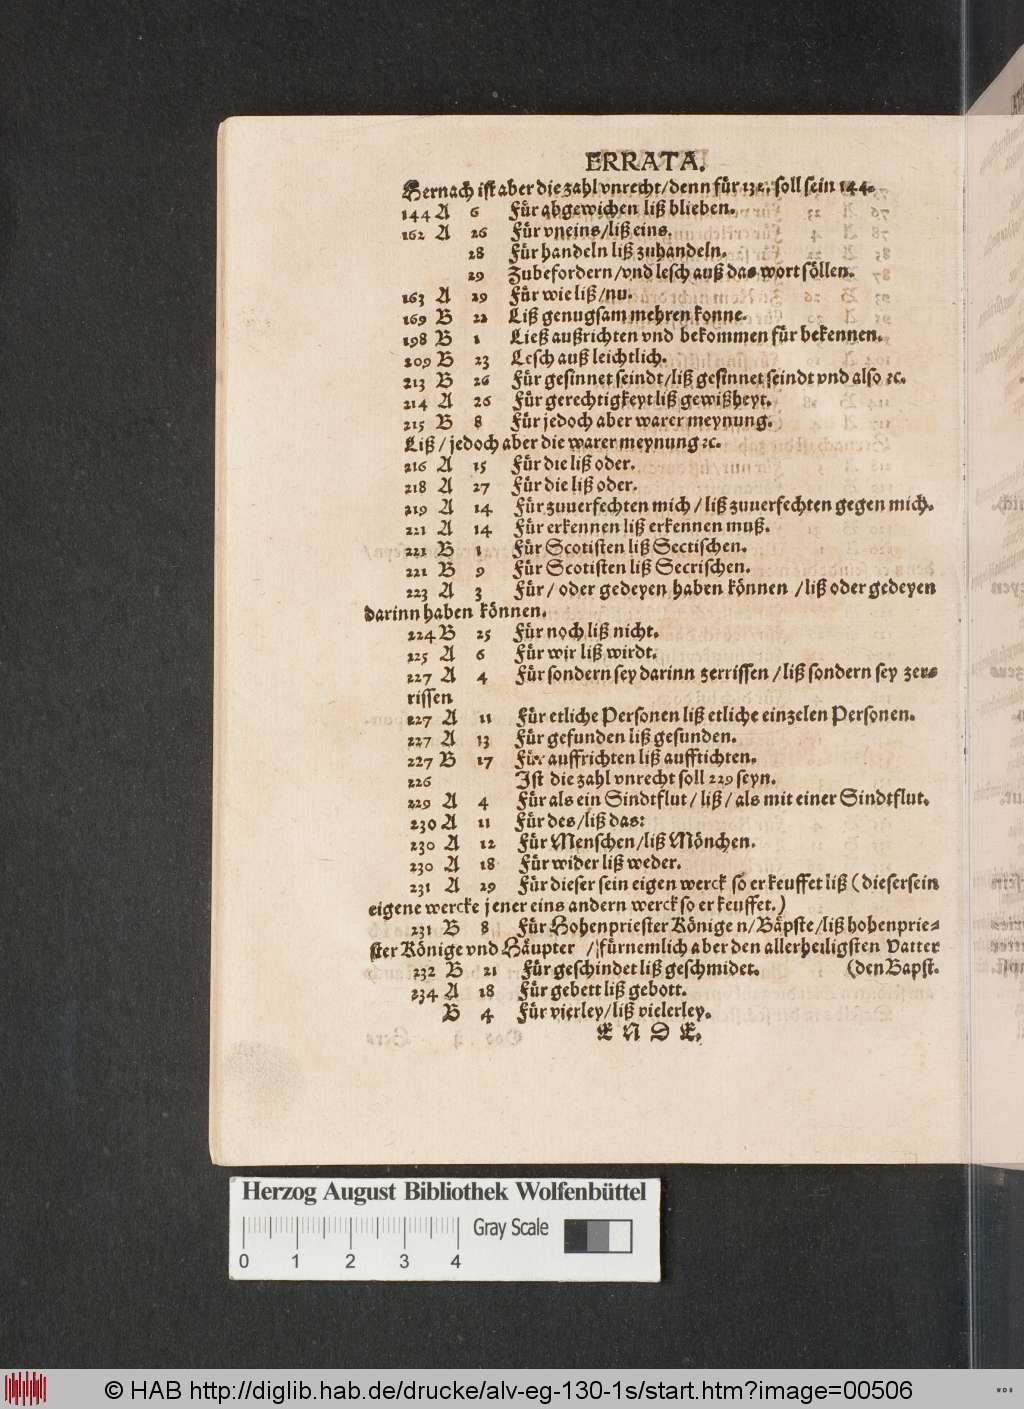 ERRATA.
Hernach ist aber die zahl vnrecht/denn für 132. soll sein 144.
144 A 6 Für abgewichen liß blieben.
162 A 26 Für vneins/liß eins.
28 Für handeln liß zuhandeln.
29 Zubefordern/vnd lesch auß das wort söllen.
163 A 29 Für wie liß/nu.
169 B 22 Liß genugsam mehren konne.
198 B 1 Ließ außrichten vnd bekommen für bekennen.
209 B 23 Lesch auß leichtlich.
213 B 26 Für gesinnet seindt/liß gesinnet seindt vnd also ꝛc.
214 A 26 Für gerechtigkeyt liß gewißheyt.
215 B 8 Für jedoch aber warer meynung.
Liß/jedoch aber die warer meynung ꝛc.
216 A 15 Für die liß oder.
218 A 27 Für die liß oder.
219 A 14 Für zuuerfechten mich/liß zuuerfechten gegen mich.
221 A 14 Für erkennen liß erkennen muß.
221 B 1 Für Scotisten liß Sectischen.
221 B 9 Für Scotisten liß Secrischen.
223 A 3 Für/oder gedeyen haben können/liß oder gedeyen
darinn haben können.
224 B 25 Für noch liß nicht.
225 A 6 Für wir liß wirdt.
227 A 4 Für sondern sey darinn zerrissen/liß sondern sey zer⸗
rissen
227 A 11 Für etliche Personen liß etliche einzelen Personen.
227 A 13 Für gefunden liß gesunden.
227 B 17 Für auffrichten liß aufftichten.
226 Ist die zahl vnrecht soll 229 seyn.
229 A 4 Für als ein Sindtflut/liß/als mit einer Sindtflut.
230 A 11 Für des/liß das:
230 A 12 Für Menschen/liß Mönchen.
230 A 18 Für wider liß weder.
231 A 29 Für dieser sein eigen werck so er keuffet liß (dieser sein
eigene wercke jener eins andern werck so er keuffet.)
231 B 8 Für Hohenpriester Könige n/Bäpste/liß hohenprie⸗
ster Könige vnd Häupter /fürnemlich aber den allerheiligsten Vatter
232 B 21 Für geschindet liß geschmidet. (den Bapst.
234 A 18 Für gebett liß gebott.
B 4 Für vierley/liß vielerley.
E N D E.
Herzog August Bibliothek Wolfenbüttel
Gray Scale
0 1 2 3 4
© HAB http://diglib.hab.de/drucke/alv-eg-130-1s/start.htm?image=00506